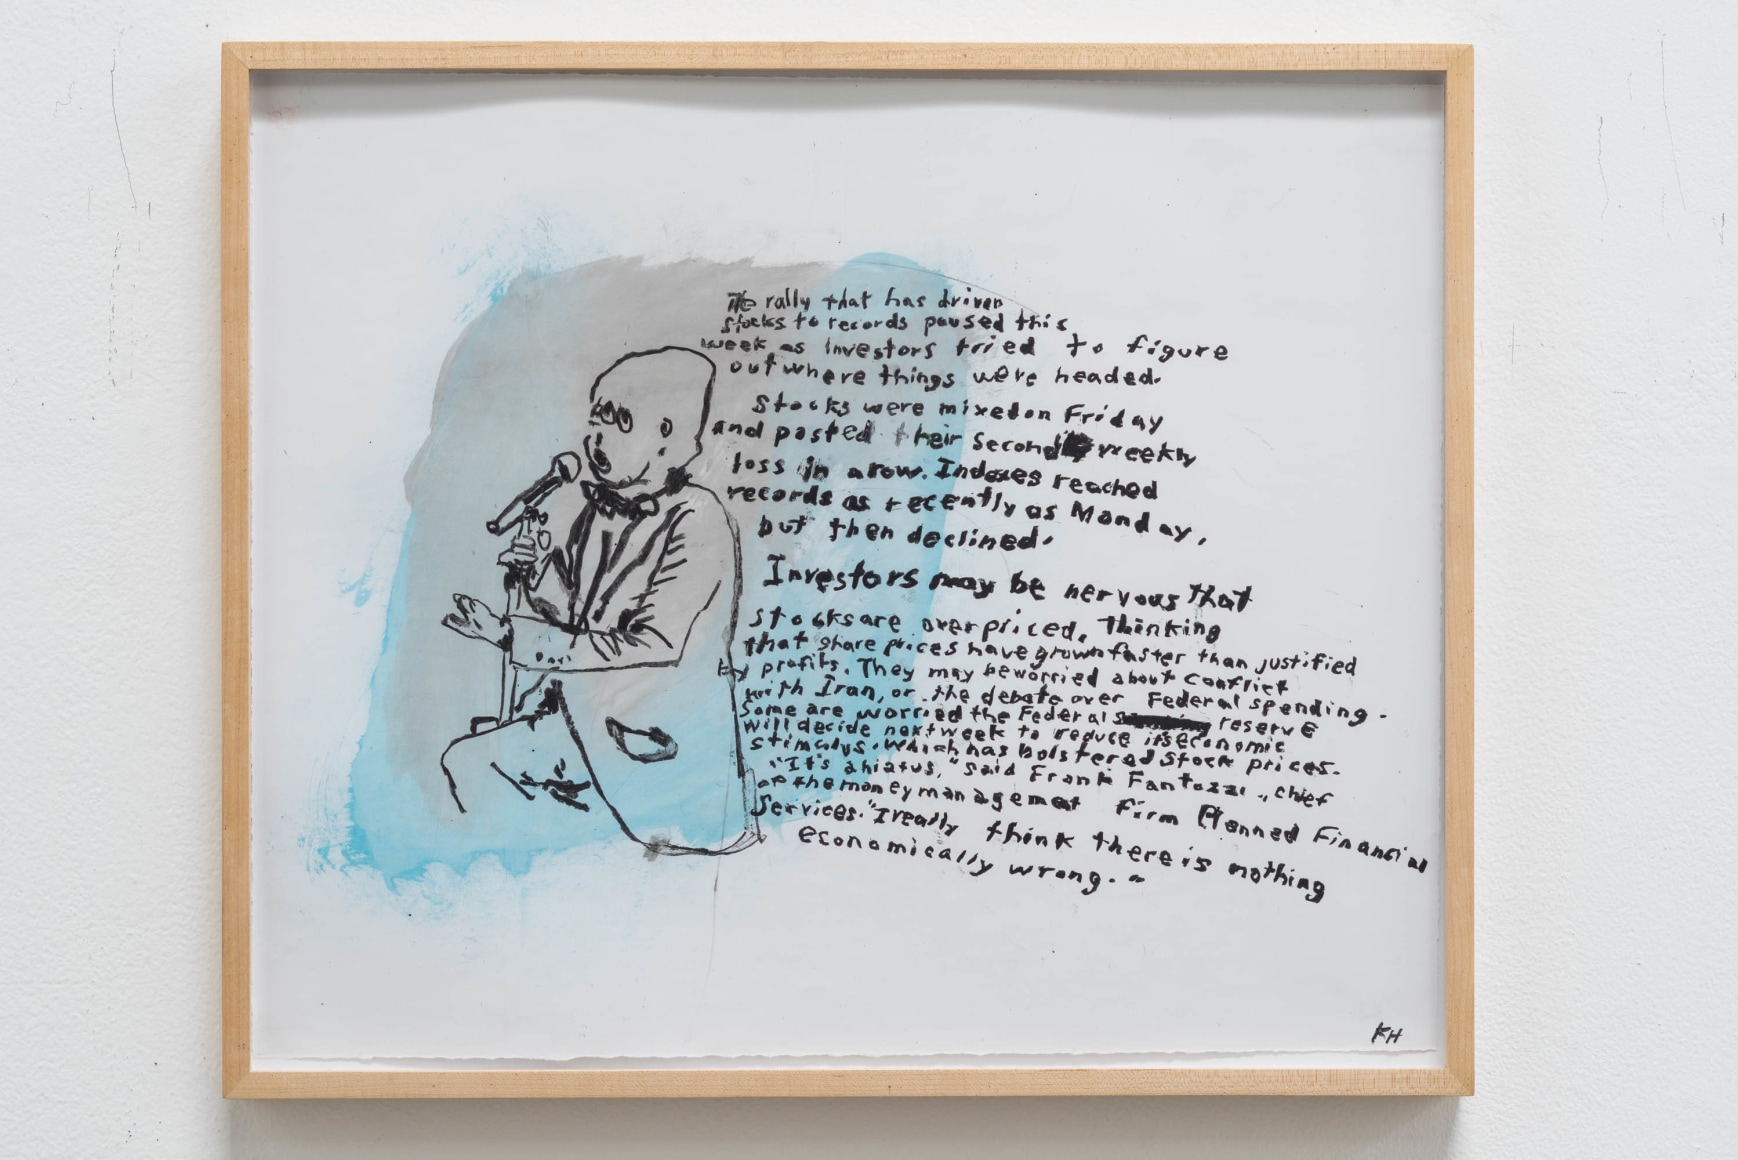 The rally that has driven
stocks to records paused this
week as investors tried to figure
out where things were headed.
Stocks were mixed on Friday
and posted their second weekly
loss in a row. Indexes reached
records as recently as Monday,
but then declined.
Investors may be nervous that
stocks are overpriced, Thinking
that share prices have grown faster than justified
by profits. They may be worried about conflict
with Iran, or the debate over Federal spending.
Some are worried the Federal reserve
will decide next week to reduce its economic
stimulus. which has bolstered stock prices.
"It's a hiatus," said Frank Fantozzi, chief
of the money management firm Planned Financial
Services. "I really think there is nothing
economically wrong."
KH